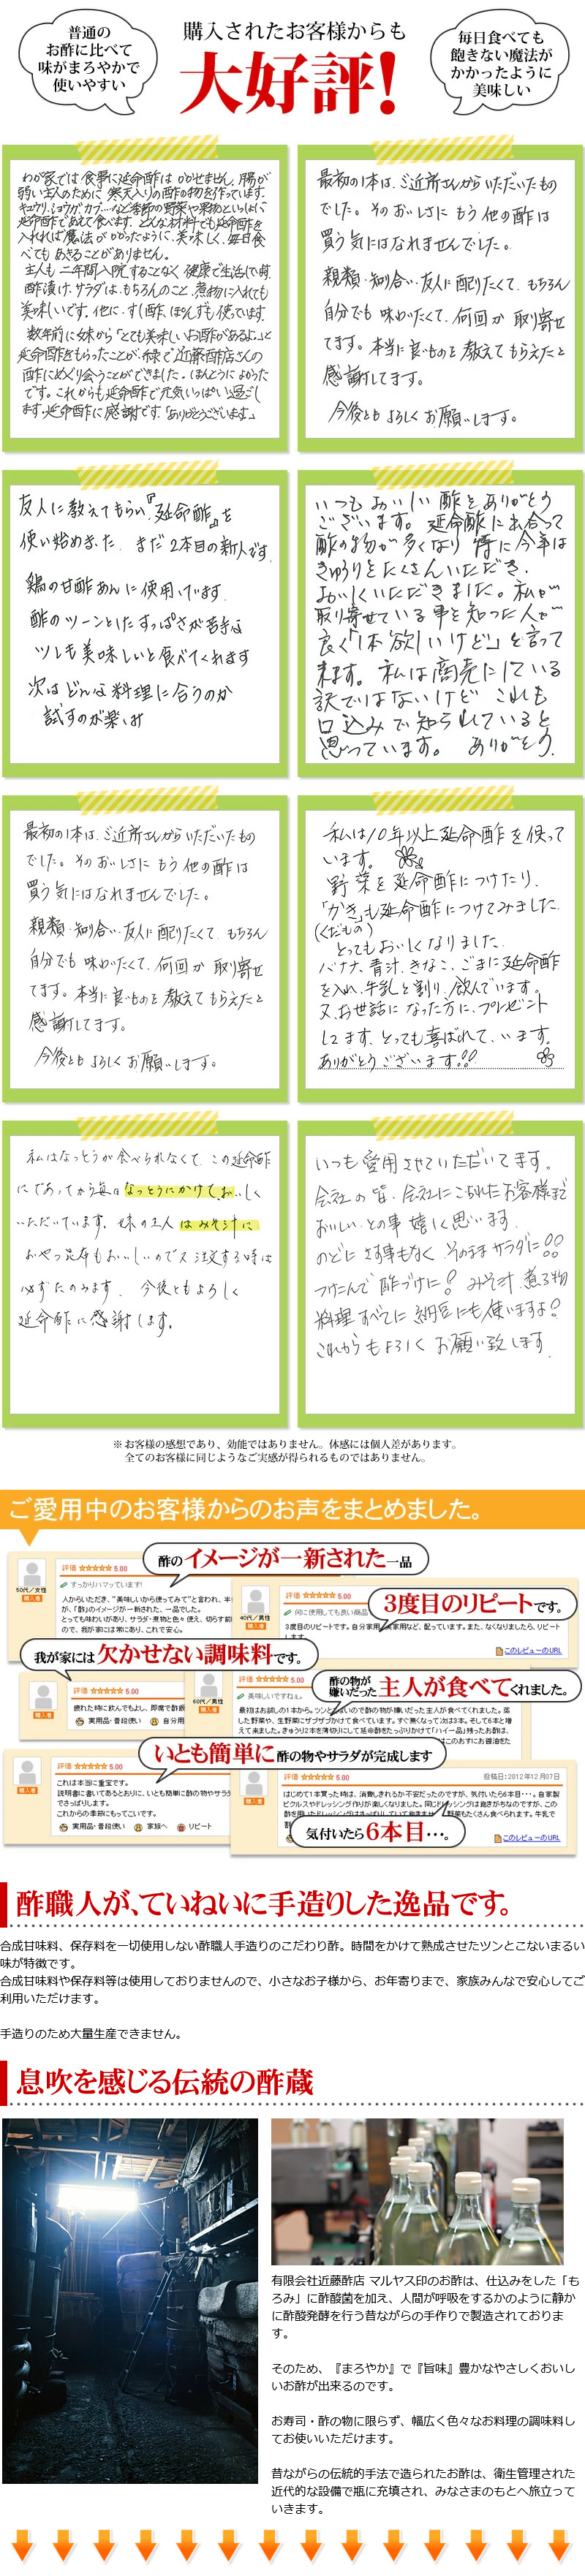 普通の
お酢に比べて
味がまろやかで
使いやすい
購入されたお客様からも
大好評!
毎日食べても
飽きない魔法が
かかったように
美味しい
わが家では食事に延命酢はかかせません。腸が
弱い主人のために、寒天入りの酢の物を作っています。
キュウリ、ショウガ、カブ……など季節の野菜や果物といっしょに
延命酢であえて食べます。どんな材料でも延命酢を
入れれば魔法がかかったように、美味しく、毎日食
べてもあきることがありません。
主人も二年間入院することなく、健康で生活して
酢漬け、サラダは、もちろんのこと、煮物に入れても
美味しいです。他に、すし酢、ぽんずも使っています。
数年前に妹から「とても美味しいお酢があるよ」と
延命酢をもらったことが、近藤酢店さんの
酢にめぐり会うことができました。ほんとうによかった
です。これからも延命酢で元気いっぱい過ごし
ます。延命酢に感謝です「ありがとうございます」
最初の1本は、ご近所さんからいただいたもの
でした。そのおいしさにもう他の酢は
買う気にはなれませんでした。
親類・知り合い・友人に配りたくて、もちろん
自分でも味わいたくて、何回か取り寄せ
てます。本当に良いものを教えてもらえたと
感謝してます。
今後ともよろしくお願いします。
友人に教えてもらい、『延命酢』を
使い始めました、まだ2本目の新人です。
鶏の甘酢あんに使用しています。
酢のツーンとしたすっぱさが苦手な
ツレも美味しいと食べてくれます
次はどんな料理に合うのか
試すのが楽しみ
いつもおいしい酢をありがとう
ございます。延命酢に出合って
酢の物が多くなり特に今年は
きゅうりをたくさんいただき、
おいしくいただきました。私が
取り寄せている事を知った人が
良く「1本欲しいけど」と言って
来ます。私は商売にしている
訳ではないけど これも
口込みで知られていると
思っています。 ありがとう。
最初の1本は、ご近所さんからいただいたもの
でした。そのおいしさにもう他の酢は
買う気にはなれませんでした。
親類・知り合い・友人に配りたくて、もちろん
自分でも味わいたくて、何回か取り寄せ
てます。本当に良いものを教えてもらえたと
感謝してます。
今後ともよろしくお願いします。
私は10年以上延命酢を使って
います。
野菜を延命酢につけたり、
「かき」も延命酢につけてみました。
(くだもの)
とってもおいしくなりました。
バナナ、青汁、きなこ、ごまに延命酢
を入れ、牛乳と割り、飲んでいます。
又、お世話になった方に、プレゼント
してます。とっても喜ばれて、います。
ありがとうございます!!
私はなっとうが食べられなくて、この延命酢
にであってから毎日なっとうにかけて、おいしく
いただいています。妹の主人はみそ汁に
おやつ昆布もおいしいのでス 注文する時は
必ずたのみます。 今後ともよろしく
延命酢に感謝します。
いつも愛用させていただいてます。
会社の皆、会社にこられたお客様まで
おいしいとの事嬉しく思います。
のどにさす事もなく、そのままサラダに!!
つけこんで酢づけに! みそ汁、煮る物
料理すべてに納豆にも使いますよ!
これからもよろしくお願い致します。
※お客様の感想であり、効能ではありません。体感には個人差があります。
全てのお客様に同じようなご実感が得られるものではありません。
ご愛用中のお客様からのお声をまとめました。
酢のイメージが一新された一品
50代/女性
購入者
評価 ★★★★★ 5.00
すっかりハマッています!
人からいただき、"美味しいから使ってみて"と言われ、半
が、「酢」のイメージが一新された、一品でした。
とっても味わいがあり、サラダ・煮物と色々使え、切らす前
ので、我が家には常にあり、これで安心。
40代/男性
購入者
評価 ★★★★★ 5.00
何に使用しても良い商品
3度目のリピートです。
3度目のリピートです。自分家用、実家用など、配っています。また、なくなりましたら、リピート
します。
このレビューのURL
我が家には欠かせない調味料です。
購入者
評価 ★★★★★ 5.00
疲れた時に飲んでもよし、即席で酢飯
実用品・普段使い 自分用
60代/男性
購入者
評価 ★★★★★ 5.00
美味しいですねぇ。
酢の物が
嫌いだった主人が食べてくれました。
最初はお試しの1本から。ツンとこないので酢の物が嫌いだった主人が食べてくれました。蒸
した野菜や、生野菜にザブザブかけて食べています。すぐ無くなって次は3本。そして6本と増
えて来ました。きゅうり2本を薄切りにして延命酢をたっぷりかけて「ハイ一品」残ったお酢は、
いとも簡単に酢の物やサラダが完成します
購入者
評価 ★★★★★ 5.00
これは本当に重宝です。
説明書に書いてあるとおりに、いとも簡単に酢の物やサラダ
でさっぱりします。
これからの季節にもってこいです。
実用品・普段使い 家族へ リピート
購入者
評価 ★★★★★ 5.00
投稿日:2012年12月07日
はじめて1本買った時は、消費しきれるか不安だったのですが、気付いたら6本目・・・。自家製
ピクルスやドレッシング作りが楽しくなりました。同じドレッシングは飽きがちなのですが、この
気付いたら6本目・・・。
このレビューのURL
酢職人が、ていねいに手造りした逸品です。
合成甘味料、保存料を一切使用しない酢職人手造りのこだわり酢。時間をかけて熟成させたツンとこないまるい
味が特徴です。
合成甘味料や保存料等は使用しておりませんので、小さなお子様から、お年寄りまで、家族みんなで安心してご
利用いただけます。
手造りのため大量生産できません。
息吹を感じる伝統の酢蔵
有限会社近藤酢店 マルヤス印のお酢は、仕込みをした「も
ろみ」に酢酸菌を加え、人間が呼吸をするかのように静か
に酢酸発酵を行う昔ながらの手作りで製造されておりま
す。
そのため、『まろやか』で『旨味』豊かなやさしくおいし
いお酢が出来るのです。
お寿司・酢の物に限らず、幅広く色々なお料理の調味料し
てお使いいただけます。
昔ながらの伝統的手法で造られたお酢は、衛生管理された
近代的な設備で瓶に充填され、みなさまのもとへ旅立って
いきます。